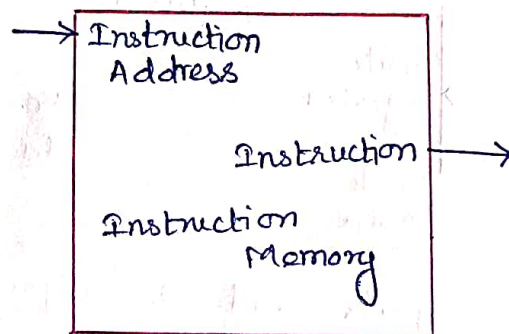 Instruction
Address
Instruction
Instruction
Memory